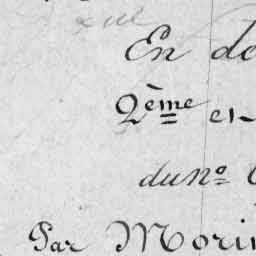 En de
2ème en
du no
Par Morin